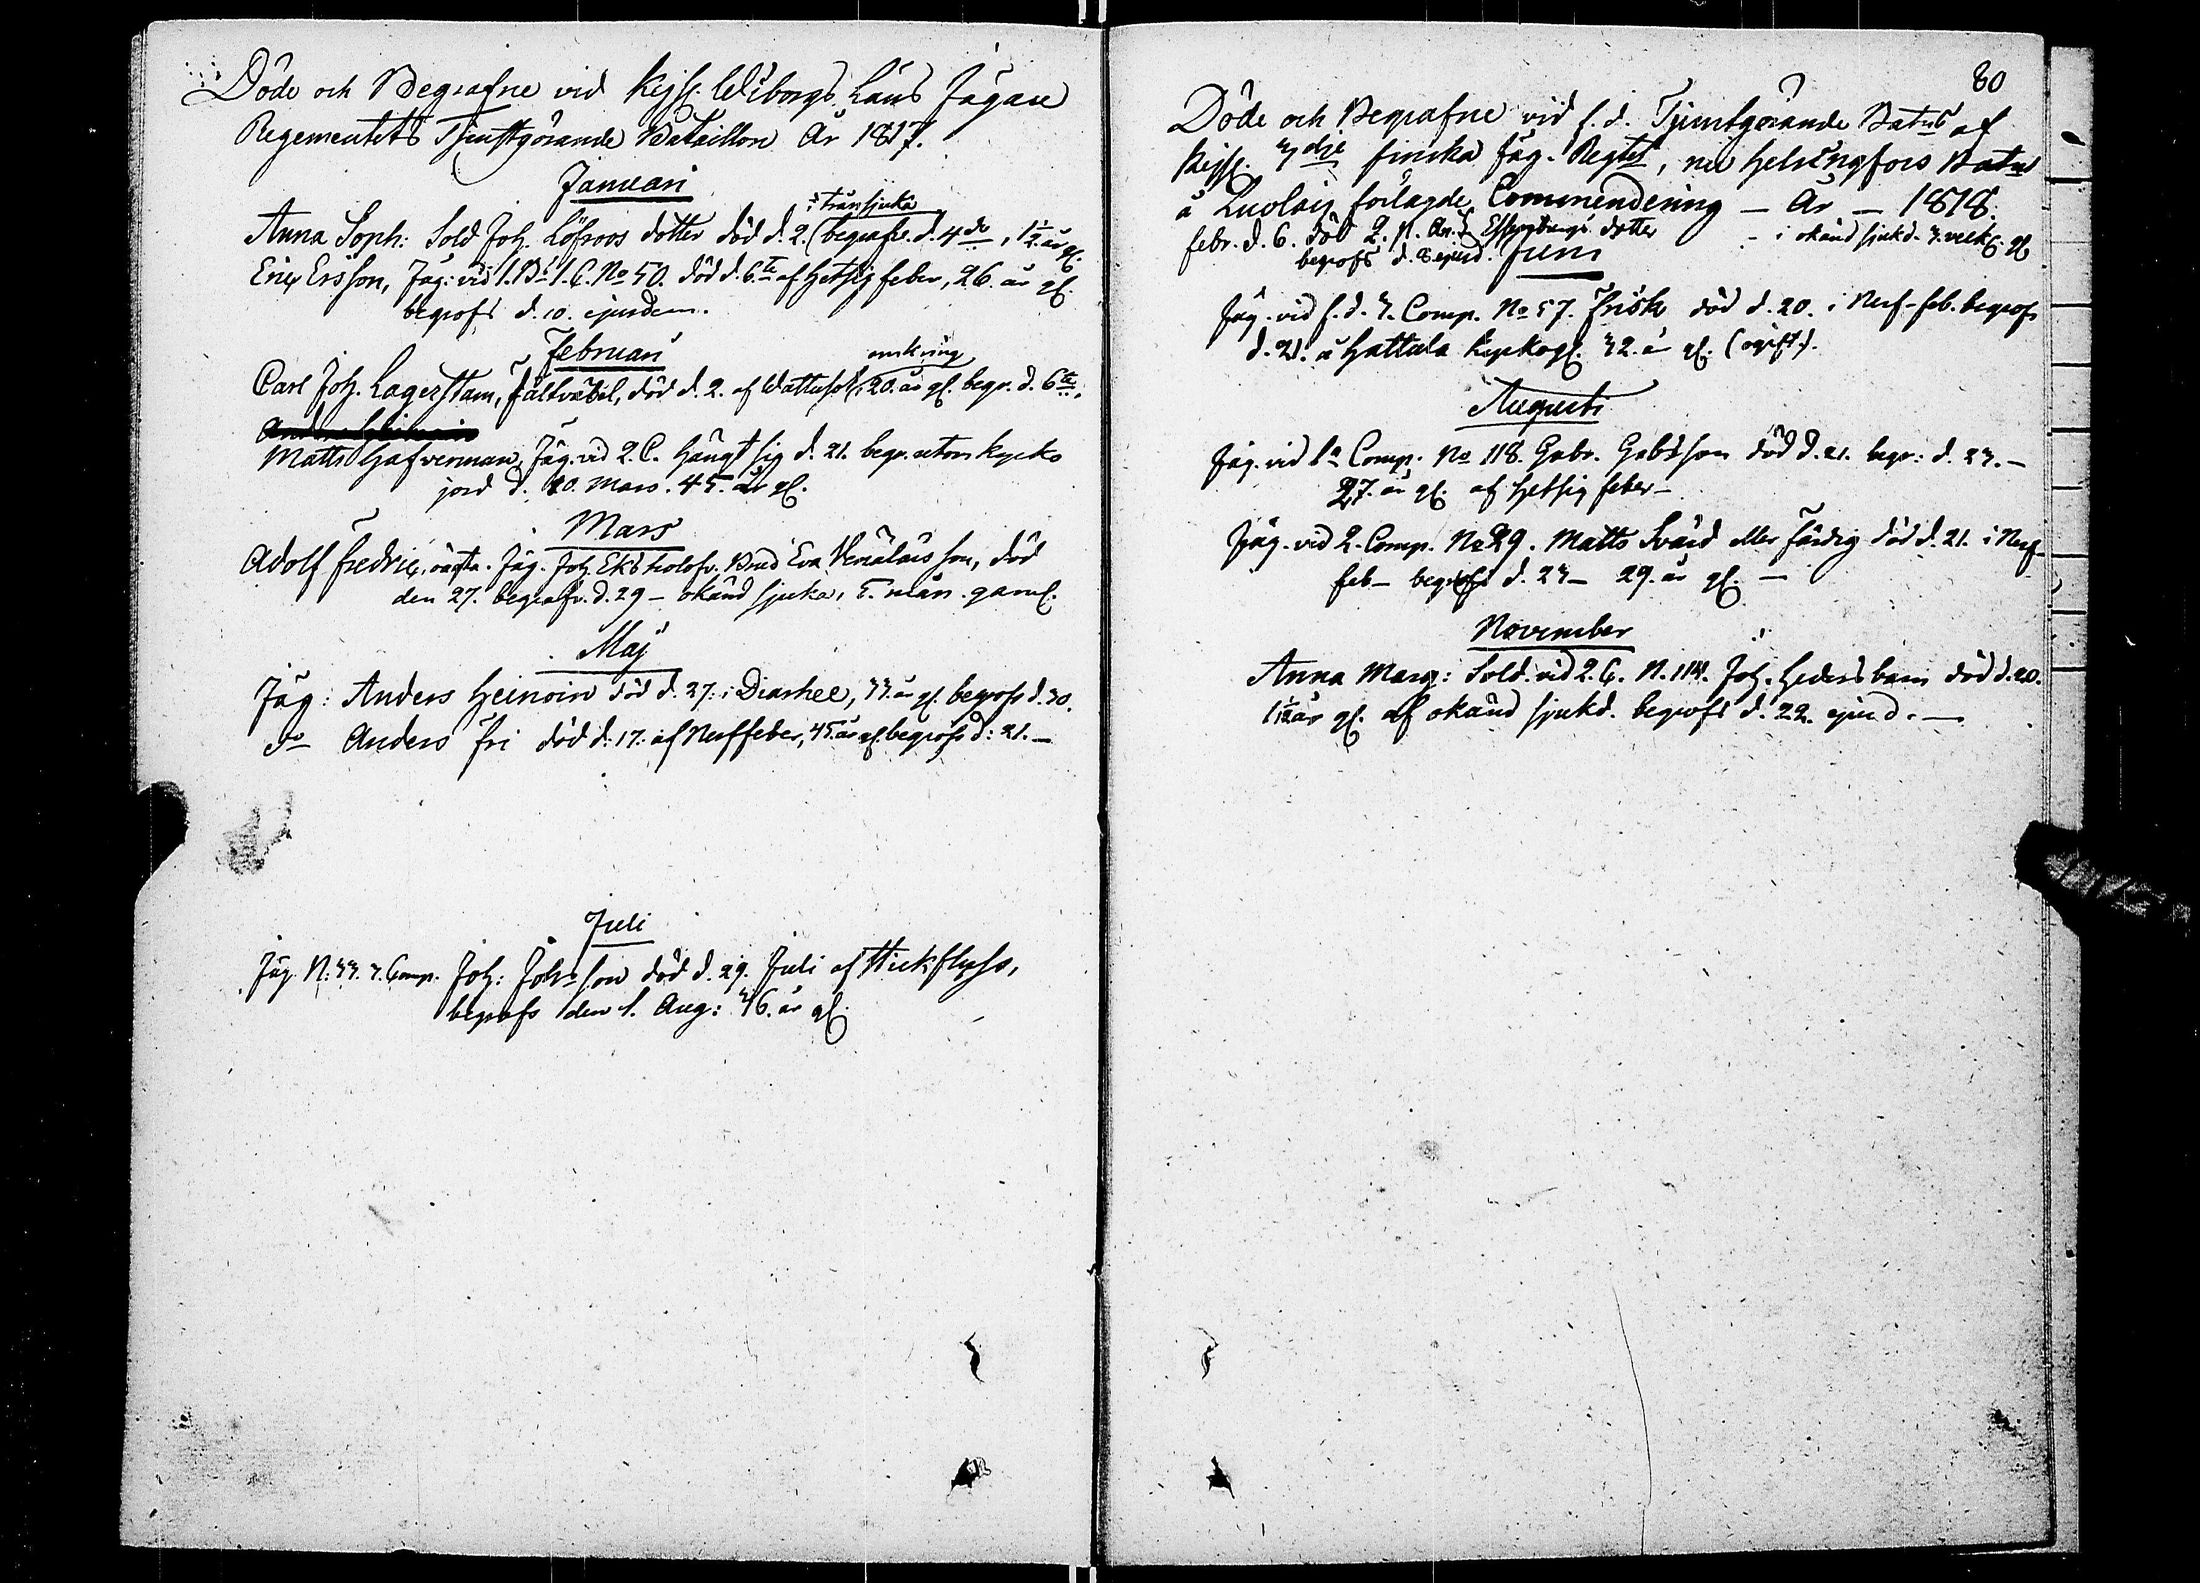 Döde och Begrafne vid Kejs. Wiborgs Läns Jägare
Regementets Tjenstgörande Bataillon År 1817.
Januari
i tränsjuka
Anna Soph: Sold. Joh. Löfroos dotter död d. 2. (begrafv. d. 4de, 1 1/2 år gl.
Eric Ersson, Jäg: vid 1. Bt 1. C. No 50. död d. 6te af Hetsig feber, 26. år gl.
begrofs d. 10. ejusdem.
Februari
omkring
Carl Joh. Lagerstam, Fältväbel, död d. 2. af Wattusot, 20. år gl. begr. d. 6te.
Matts Hafverman, Jäg. vid 2. C. hängt sig d. 21. begr. utom kyrko
jord d. 10. Mars. 45. år gl.
Mars
Adolf Fredric, oägta. Jäg. Joh. Ekbholofv. Brud Eva son, död
den 27. begrafv. d. 29 - okänd sjuka, 5. mån. gaml.
Maj
Jäg: Anders Heinoin död d. 27. i Diarhee, 33. år gl. begrofs d. 30.
do Anders Fri död d. 17. af Nerffeber, 45 år gl. begrofs d: 21. -
Juli
Jäg. N: 33. 3. Comp. Joh: Johsson död d. 29. Juli af Stickflyss,
begrofs den 1. Aug: 36. år gl.
80
Döde och Begrafne vid f. d. Tjenstgörande Batns af
Kejs. 3dje Finska Jäg. Regtet, nu Helsingfors Batn
å förlagde Commendering - År - 1818.
Febr. d. 6. död 2. dotter - i okänd sjukd. 3. veck. gl
begrofs d. 8 ejusd.
Juni
Jäg. vid f. d. 3. Comp. No 57. Frisk död d. 20. i Nerf-feb. begrofs
d. 21. å Hattula Kyrkog. 32. år gl. (ogift).
Augusti
Jäg. vid 1a Comp. No 118. Gabr. Gabrsson död d. 21. begr: d. 23. -
27. år gl. af Hetsig feber -
Jäg. vid 2. Comp. No 29. Matts Svärd eller Färdig död d. 21. i Nerf-
feb - begrofs d. 23 - 29. år gl. -
November
Anna Marg: Sold. vid 2. C. N. 114. Joh. Heders barn död d. 20.
1 1/12 år gl. af okänd sjukd. begrofs d. 22. ejusd. -